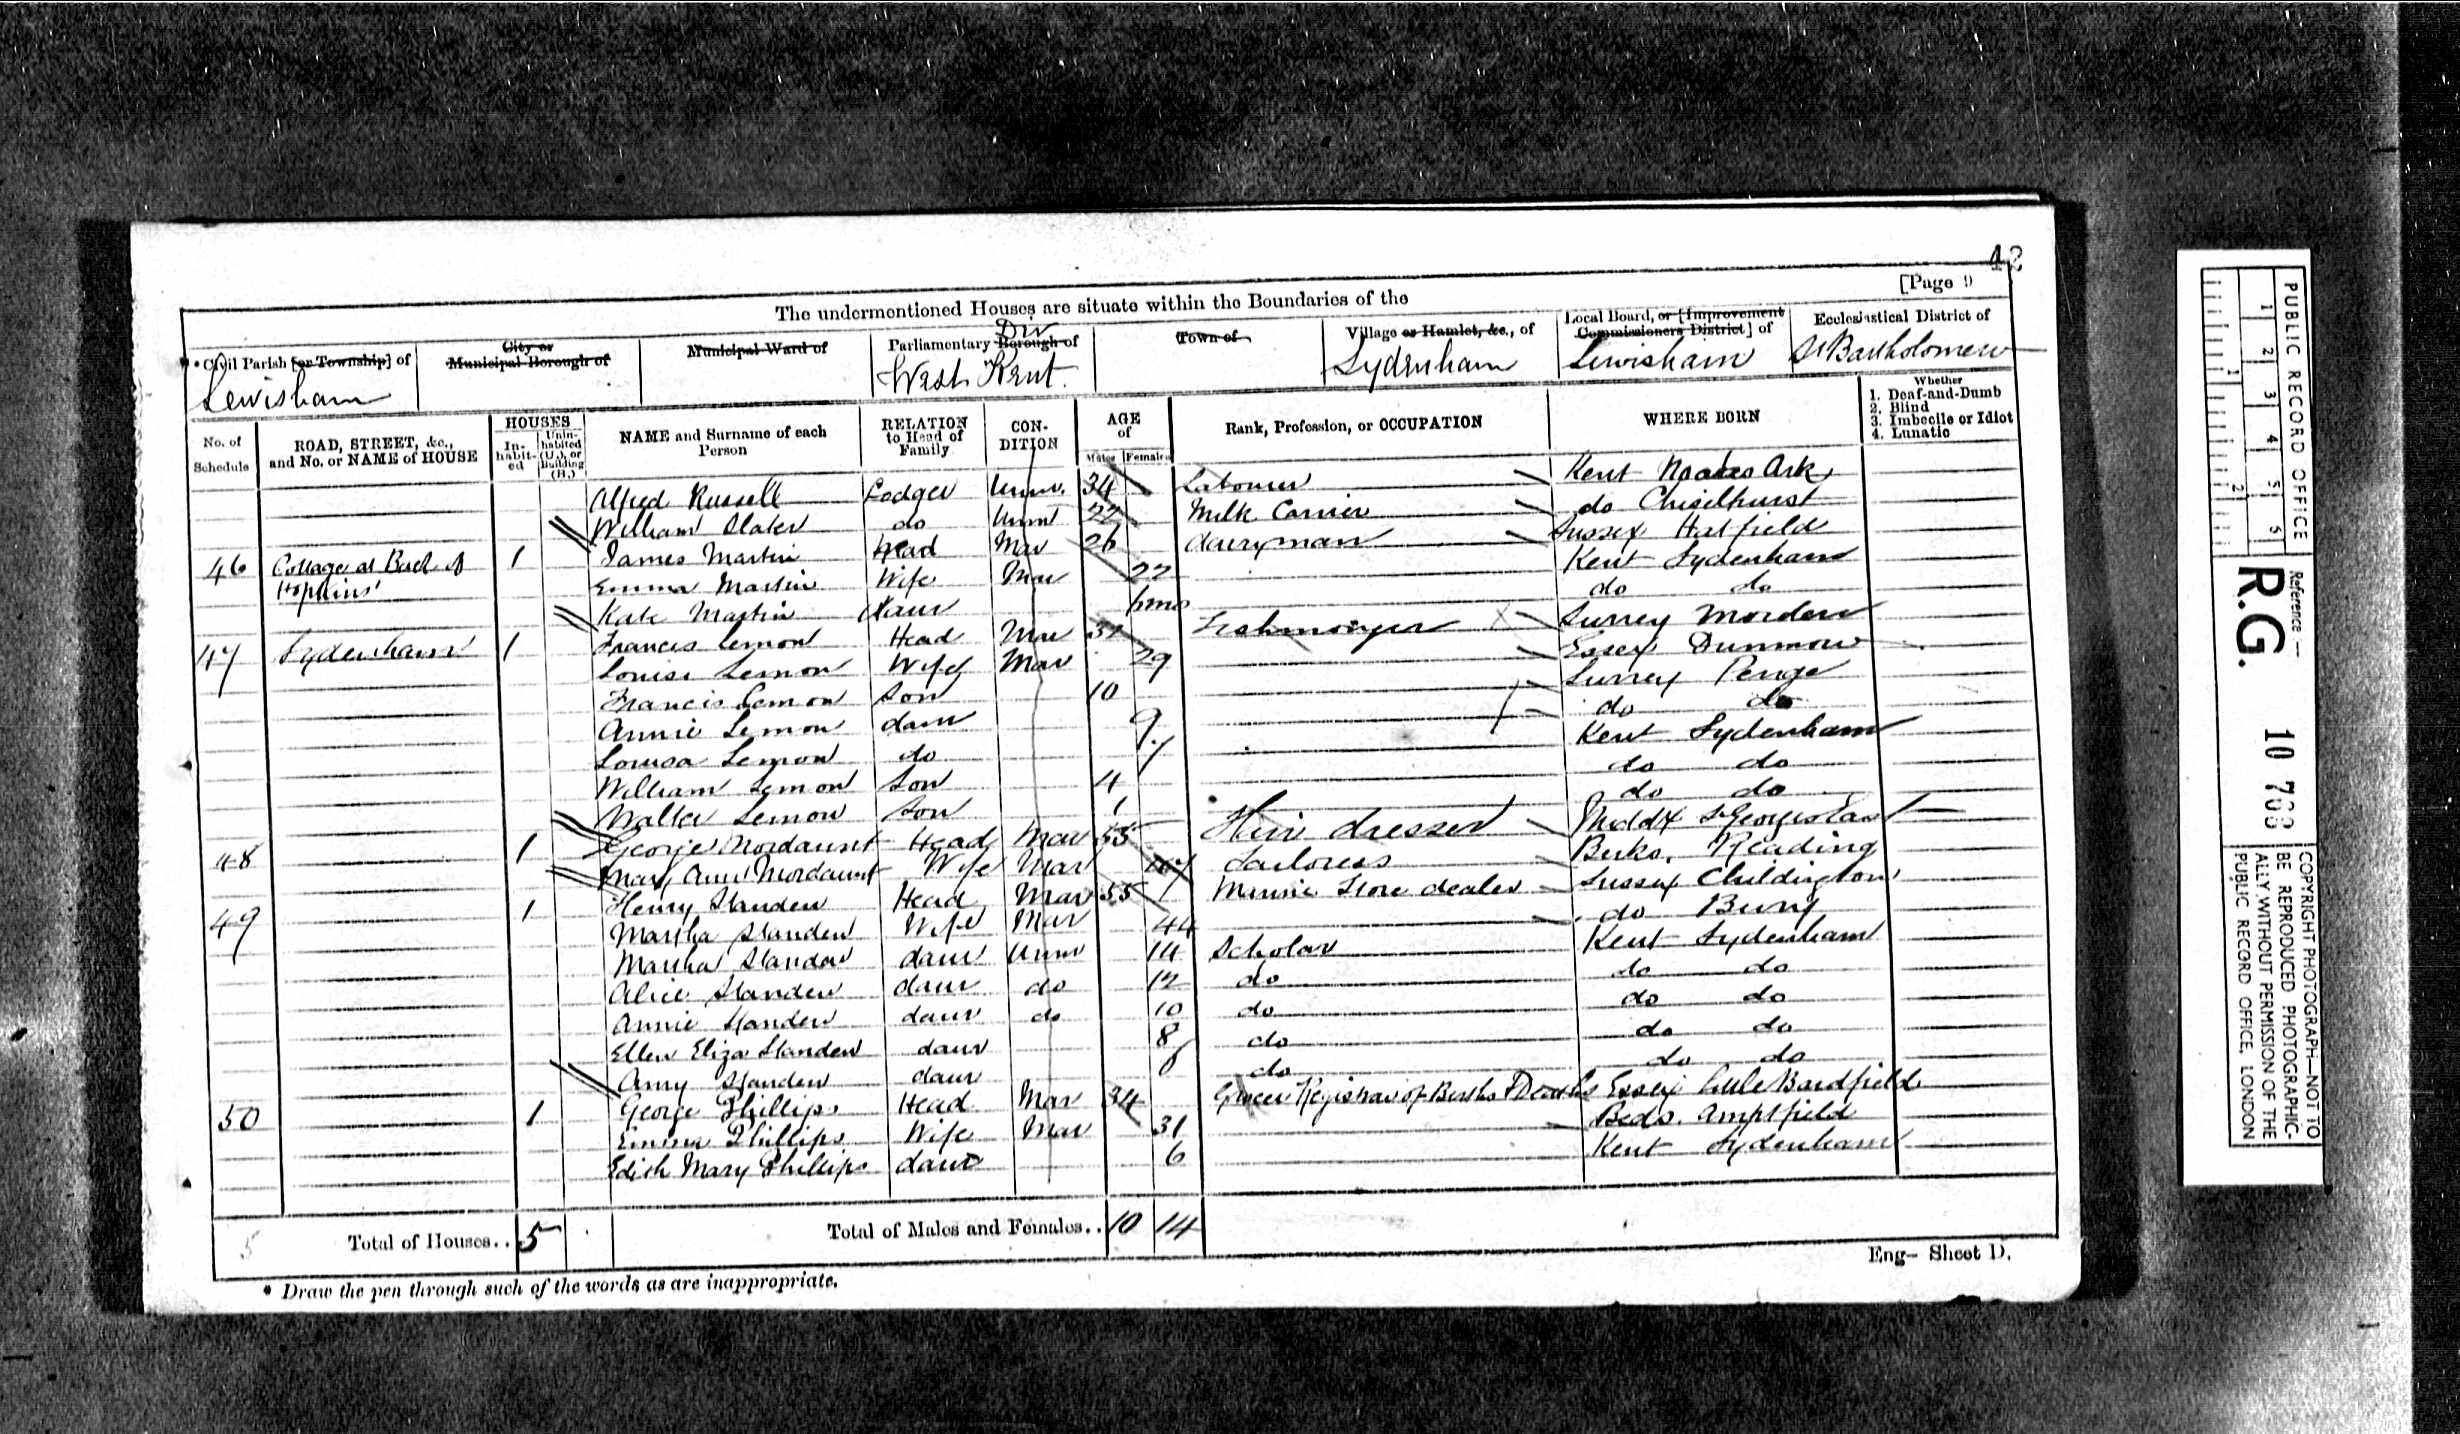 42
[Page 9
The undermentioned Houses are situate within the Boundaries of the
* Civil Parish [or Township] of City or Municipal Borough of Municipal Ward of Parliamentary Borough of Div Town of Village or Hamlet, &c., of Local Board, or [Improvement Commissioners District] of Ecclesiastical District of
Lewisham West Kent Sydenham Lewisham St Bartholomew
No. of Schedule ROAD, STREET, &c., and No. or NAME of HOUSE HOUSES In-habit-ed Unin-habited (U.), or Building (B.) NAME and Surname of each Person RELATION to Head of Family CON-DITION AGE of Males Females Rank, Profession, or OCCUPATION WHERE BORN Whether 1. Deaf-and-Dumb 2. Blind 3. Imbecile or Idiot 4. Lunatic
Alfred Russell Lodger Unm. 34 Labourer Kent Noakes Ark
William Slater do Unm 22 Milk Carrier do Chiselhurst
46 Cottage at Back of Hopkins' 1 James Martin Head Mar 26 dairyman Sussex Hatfield
Emma Martin Wife Mar 22 Kent Sydenham
Kate Martin daur 6mos do do
47 Sydenham 1 Francis Lemon Head Mar 31 Fishmonger Surrey Morden
Louisa Lemon Wife Mar 29 Essex Dunmow
Francis Lemon Son 10 Surrey Penge
Annie Lemon daur 9 do do
Louisa Lemon do 7 Kent Sydenham
William Lemon Son 4 do do
Walter Lemon Son 1 do do
48 1 George Mordaunt Head Mar 55 Hair dresser Middx St Georges East
Mary Ann Mordaunt Wife Mar Tailoress Berks. Reading
49 1 Henry Standen Head Mar 55 Marine Store dealer Sussex Childington
Martha Standen Wife Mar 44 do Bury
Martha Standen daur Unm 14 Scholar Kent Sydenham
Alice Standen daur do 12 do do do
Annie Standen daur do 10 do do do
Ellen Eliza Standen daur 8 do do do
Amy Standen daur do do do
50 1 George Phillips Head Mar 34 Grocer Registrar of Births & Deaths Essex Little Bardfield
Emma Phillips Wife Mar 31 Beds. Amptfield
Edith Mary Phillips daur 6 Kent Sydenham
5 Total of Houses.. 5 Total of Males and Females.. 10 14
Eng- Sheet D.
* Draw the pen through such of the words as are inappropriate.
PUBLIC RECORD OFFICE
1 2 3 4 5 6
1 2
Reference:-
R.G. 10
COPYRIGHT PHOTOGRAPH—NOT TO
BE REPRODUCED PHOTOGRAPHIC-
ALLY WITHOUT PERMISSION OF THE
PUBLIC RECORD OFFICE, LONDON